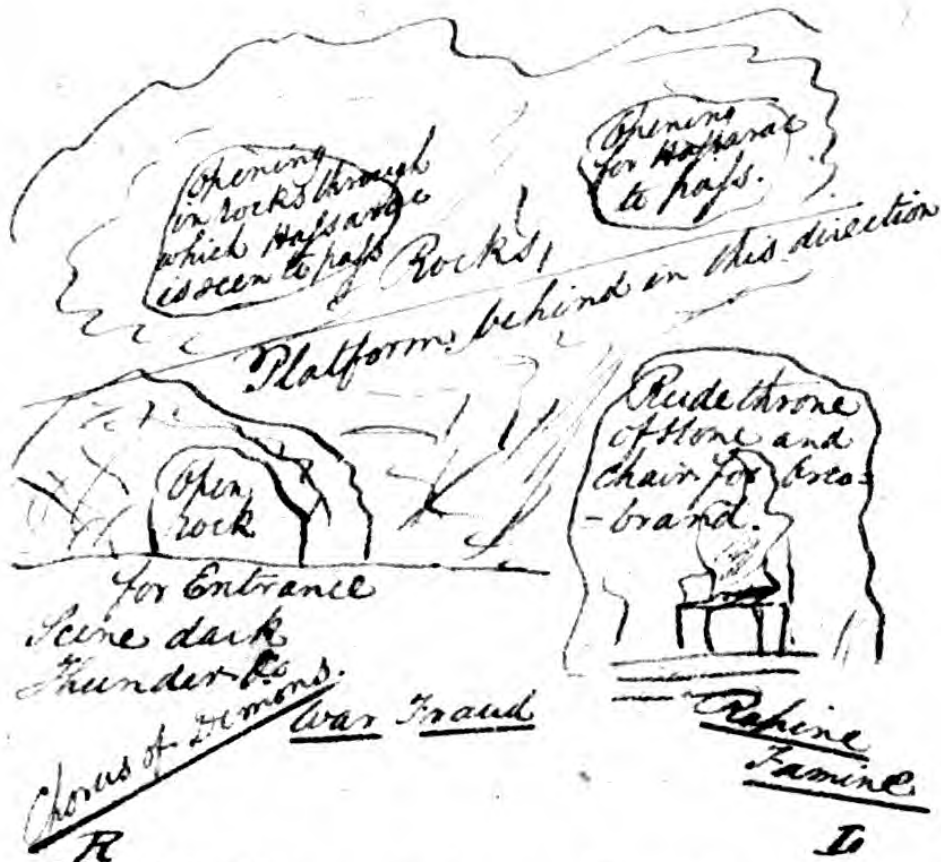 Opening
in rocks through
which Hassarac
is seen to pass
Opening
for Hassarac
to pass.
Rocks,
Platform behind in this direction
Open
rock
for Entrance
Rude throne
of stone and
chair for Orco-
-brand.
Scene dark
Thunder &c
Chorus of Demons.
War Fraud
Rapine
Famine
R
L